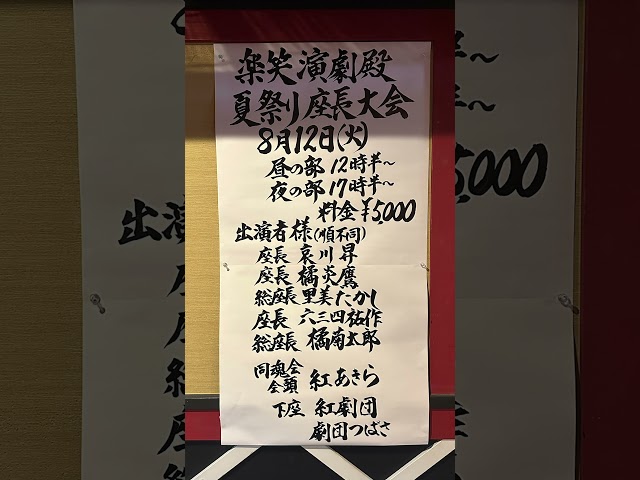 楽笑演劇殿
夏祭り座長大会
8月12日(火)
昼の部 12時半~
夜の部 17時半~
料金¥5,000
出演者様(順不同)
座長 哀川昇
座長 橘炎鷹
総座長 里美たかし
座長 六三四祐作
総座長 橘南太郎
同魂会
会頭 紅あきら
下座 紅劇団
劇団つばさ